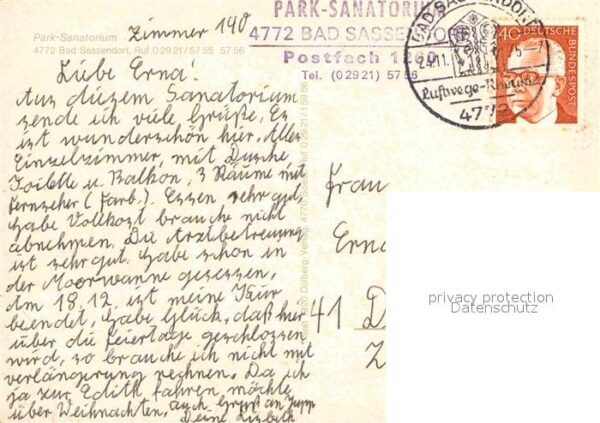 Zimmer 140
Park-Sanatorium
4772 Bad Sassendorf, Ruf 0 29 21 / 57 55 57 56
PARK-SANATORIUM
4772 BAD SASSENDORF
Postfach
Tel. (0 29 21) 57 56
BAD SASSENDORF
Luftwege-
4772
40 DEUTSCHE BUNDESPOST
Liebe Erna!
Aus diesem Sanatorium
sende ich viele Grüße. Es
ist wunderschön hier. Alles
Einzelzimmer, mit Dusche,
Toilette u. Balkon, 3 Räume mit
Fernseher (Farb.). Essen, sehr gut
habe Vollkost brauche nicht
abnehmen. Die Arztbetreuung
ist sehr gut. Habe schon in
der Moorwanne gesessen.
Am 18.12. ist meine Kur
beendet, habe Glück, daß hier
über die Feiertage geschlossen
wird, so brauche ich nicht mit
verlängerung rechnen. Da ich
ja zur Edith fahren möchte
über Weihnachten. auch Gruß an
Deine Lisbeth
Frau
Erna
41 D
privacy protection
Datenschutz